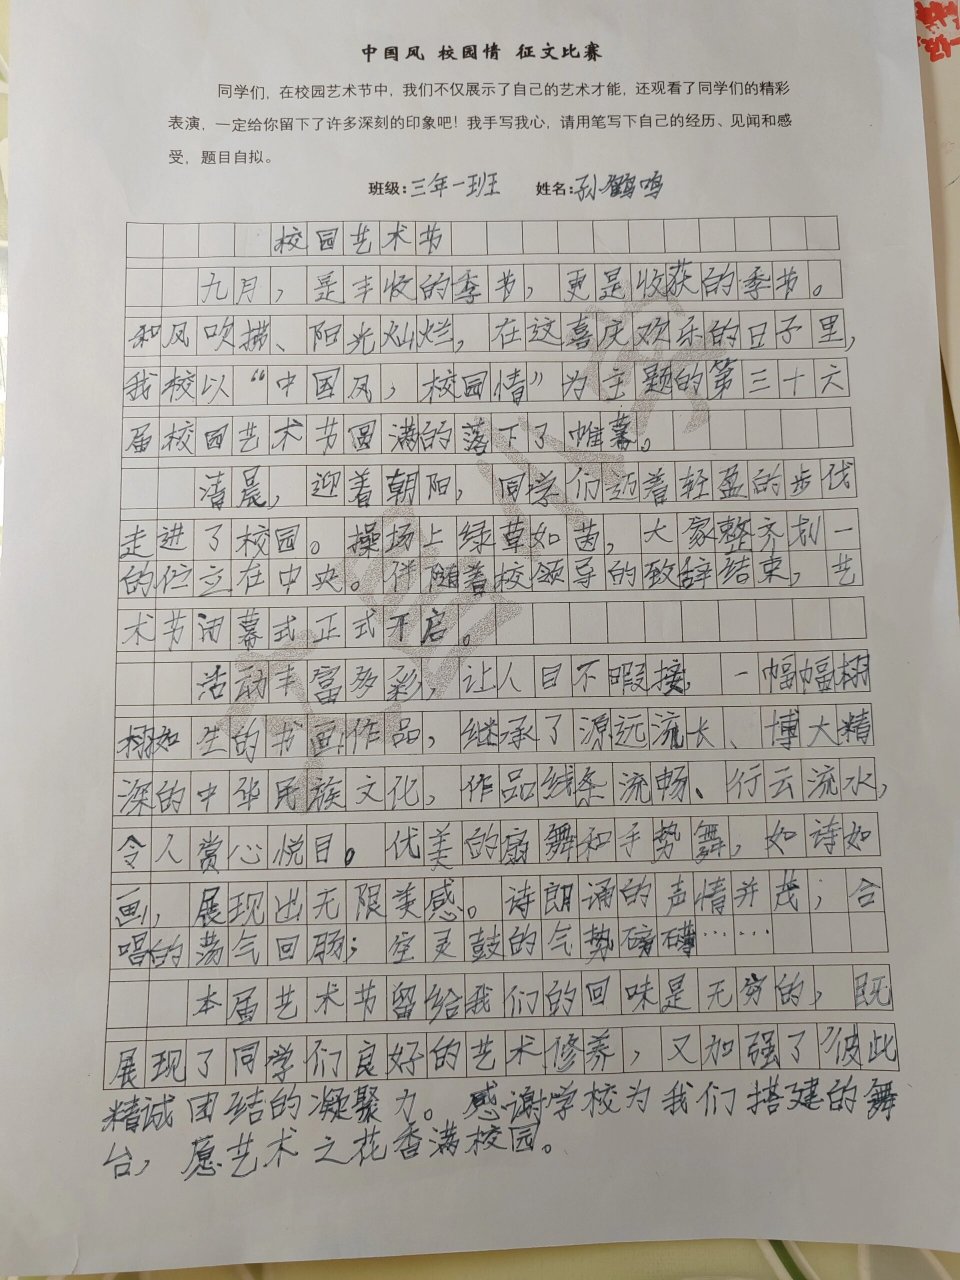 中国风 校园情 征文比赛
同学们，在校园艺术节中，我们不仅展示了自己的艺术才能，还观看了同学们的精彩
表演，一定给你留下了许多深刻的印象吧！我手写我心，请用笔写下自己的经历、见闻和感
受，题目自拟。
班级：三年一班 姓名：孙鹤鸣
校园艺术节
九月，是丰收的季节，更是收获的季节。
和风吹拂、阳光灿烂，在这喜庆欢乐的日子里，
我校以“中国风，校园情”为主题的第三十六
届校园艺术节圆满的落下了帷幕。
清晨，迎着朝阳，同学们迈着轻盈的步伐
走进了校园。操场上绿草如茵，大家整齐划一
的伫立在中央。伴随着校领导的致辞结束，艺
术节闭幕式正式开启。
活动丰富多彩，让人目不暇接，一幅幅栩
栩如生的书画作品，继承了源远流长、博大精
深的中华民族文化，作品线条流畅、行云流水，
令人赏心悦目。优美的扇舞和手势舞，如诗如
画，展现出无限美感。诗朗诵的声情并茂；合
唱的荡气回肠；空灵鼓的气势磅礴……
本届艺术节留给我们的回味是无穷的，既
展现了同学们良好的艺术修养，又加强了彼此
精诚团结的凝聚力。感谢学校为我们搭建的舞
台，愿艺术之花香满校园。